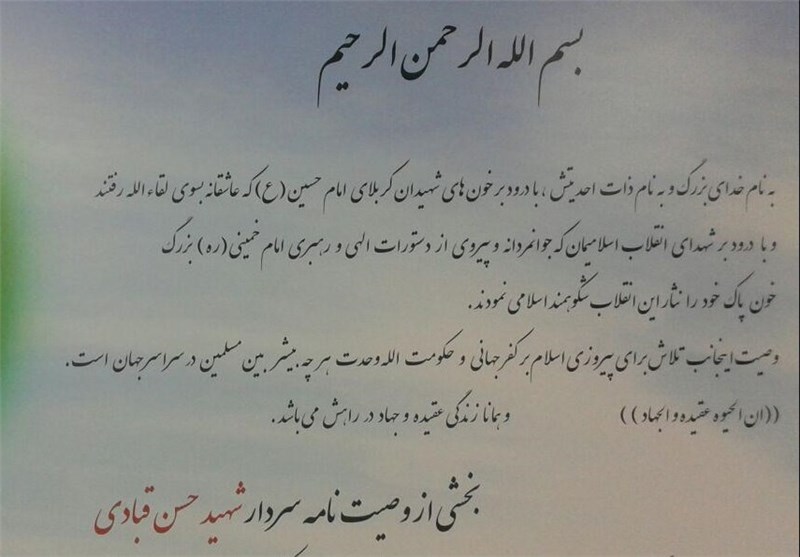 بسم الله الرحمن الرحیم
به نام خدای بزرگ و به نام ذات احدیتش ، با درود بر خون های شهیدان کربلای امام حسین (ع) که عاشقانه بسوی لقاء الله رفتند
و با درود بر شهدای انقلاب اسلامیمان که جوانمردانه و پیروی از دستورات الهی و رهبری امام خمینی (ره) بزرگ
خون پاک خود را نثار این انقلاب شکوهمند اسلامی نمودند .
وصیت اینجانب تلاش برای پیروزی اسلام بر کفر جهانی و حکومت الله وحدت هر چه بیشتر بین مسلمین در سراسر جهان است .
((ان الحیوه عقیده و الجهاد )) و همانا زندگی عقیده و جهاد در راهش می باشد .
بخشی از وصیت نامه سردار شهید حسن قبادی